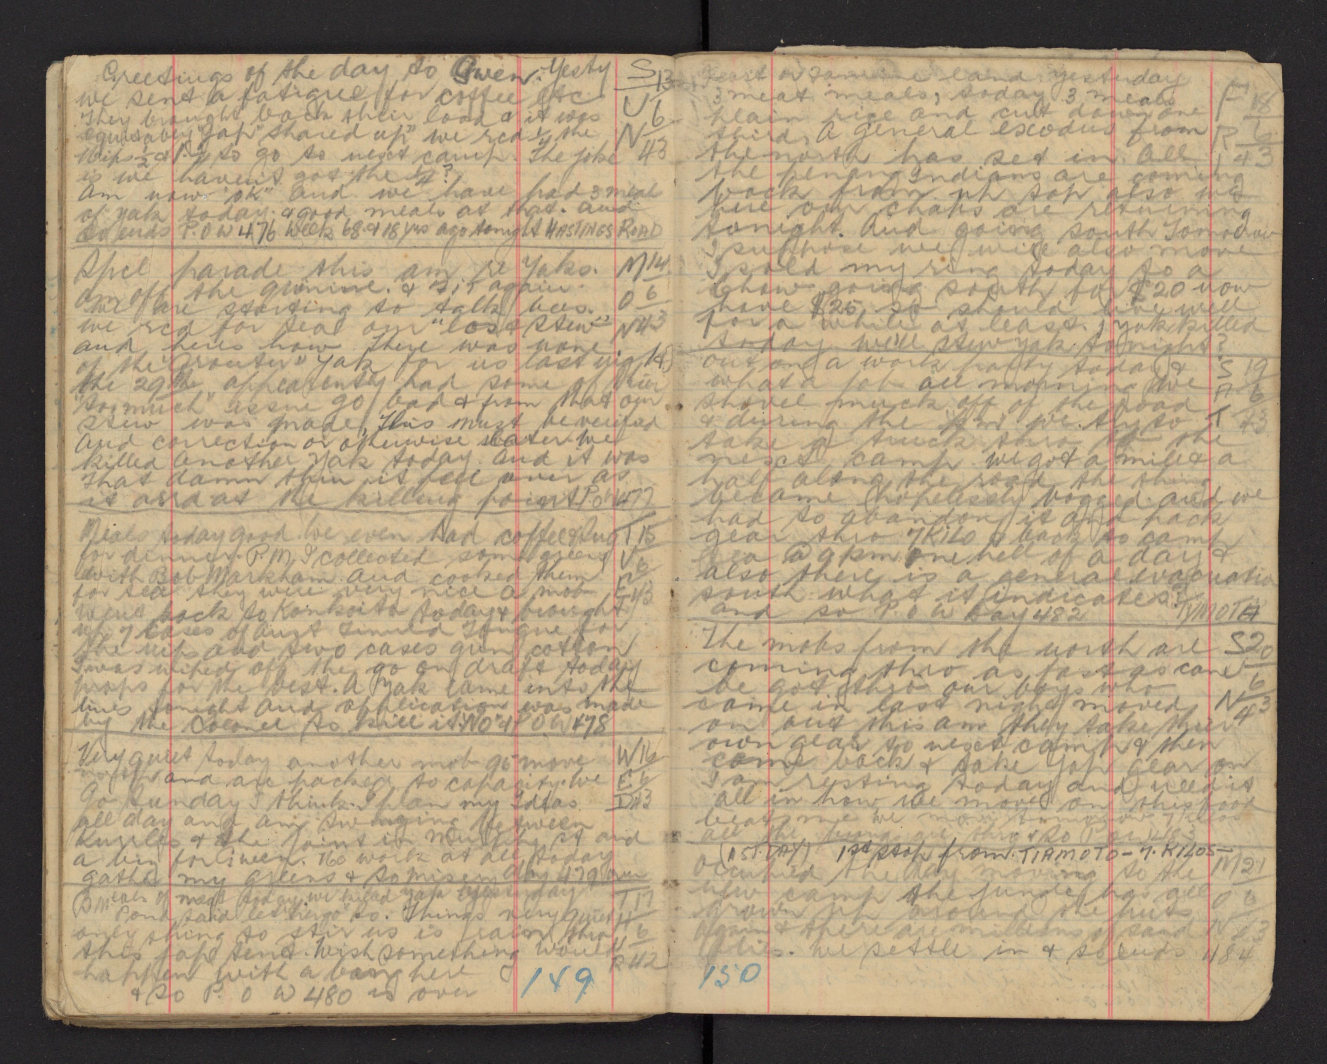 Greetings of the day to Gwen. Yesty S 13
we sent a fatigue for coffee etc U 6
They brought back their load & it was N 43
equitabley Jap "shared up" we rcd the
to go to next camp. The joke
is we havent got the
Am now "OK" and we have had 3 meal
of yak today. & good meals at that. and
so ends P.O.W 476 week 68 & 18 yrs ago tonight HASTINGS ROAD
Spcl parade this am re Yaks. M 14
am off the quinine. & again O 6
We are starting to talk N 43
we rcd for tea our "lost stew"
and heres how There was none
of the Yak for us last night
the 29th apparently had some of their
"to much" issue go bad & from that our
stew was made. This must be verified
and correction or otherwise later. We
killed another Yak today. and it was
that damn thin it fell over as
it at the killing point POW 477
Meals today good. we even had coffee T 15
for dinner. P.M. I collected some greens U 6
with Bob Markham and cooked them E 43
for tea. they were very nice a mob
went back to Konkoita today & brought
up 7 cases of Aust Tinned Tongue for
the nips and two cases gun cotton
I was wiped off the go on draft today
for the best. A Yak came into the
lines tonight and application was made
by the Colonel to kill it. "NO" & POW 478
Very quiet today another mob go move W 16
and are packed to capacity. we E 6
Go Sunday I think. I plan my ideas D 43
all day and am swinging between
& the joint in Murphy st and
a for Gwen. No work at all today
gather my greens & so misery day 479 over
of meat today. we killed yak yesterday T 17
Pond said let her go to. Things very quiet H 6
only thing to stir us is rain thro U 42
this Jap tent. Wish something would R
happen with a bang here
& so P O W 480 is over
149
yesterday F 18
3 meat meals, today 3 meals R 6
plain rice and cut down one I 43
third. A general exodus from
the north has set in. All
the penang Indians are coming
back from up top also
our chaps are returning
tonight. And going south Tomorrow
I suppose we will also move
I sold my ring today to a
going south for $20 now
have $25, so should live well
for a while at least. 1 yak killed
today. we'll stew yak tonight?
out on a work party today & S 19
what a job all morning we A 6
shovel muck off of the road T 43
& during the we try to
take a truck thro to the
next camp. we got a mile & a
half along the road the thing
became hopelessly bogged and we
had to abandon it and pack
gear thro 7 KILO & back to camp
tea @ 9 pm one hell of a day &
also there is a general evacuation
south what it indicates?
and so P.O.W Day 482 TIMOTA
The mobs from the north are S 20
coming thro as fast as can U 6
be got thro our boys who N 43
came in last night moved
on out this am. They take their
own gear to next camp & then
come back & take Jap gear on
I am resting today and need it
all in how we move on this food
beats me
& so POW 483
(1ST DAY) 1st stop from TIAMOTO - 7. KILOS -
Occupied the day moving to the M 21
new camp the jungle has all O 6
grown up around the huts N 43
again & there are millions of sand
flies. We settle in & so ends 484
150